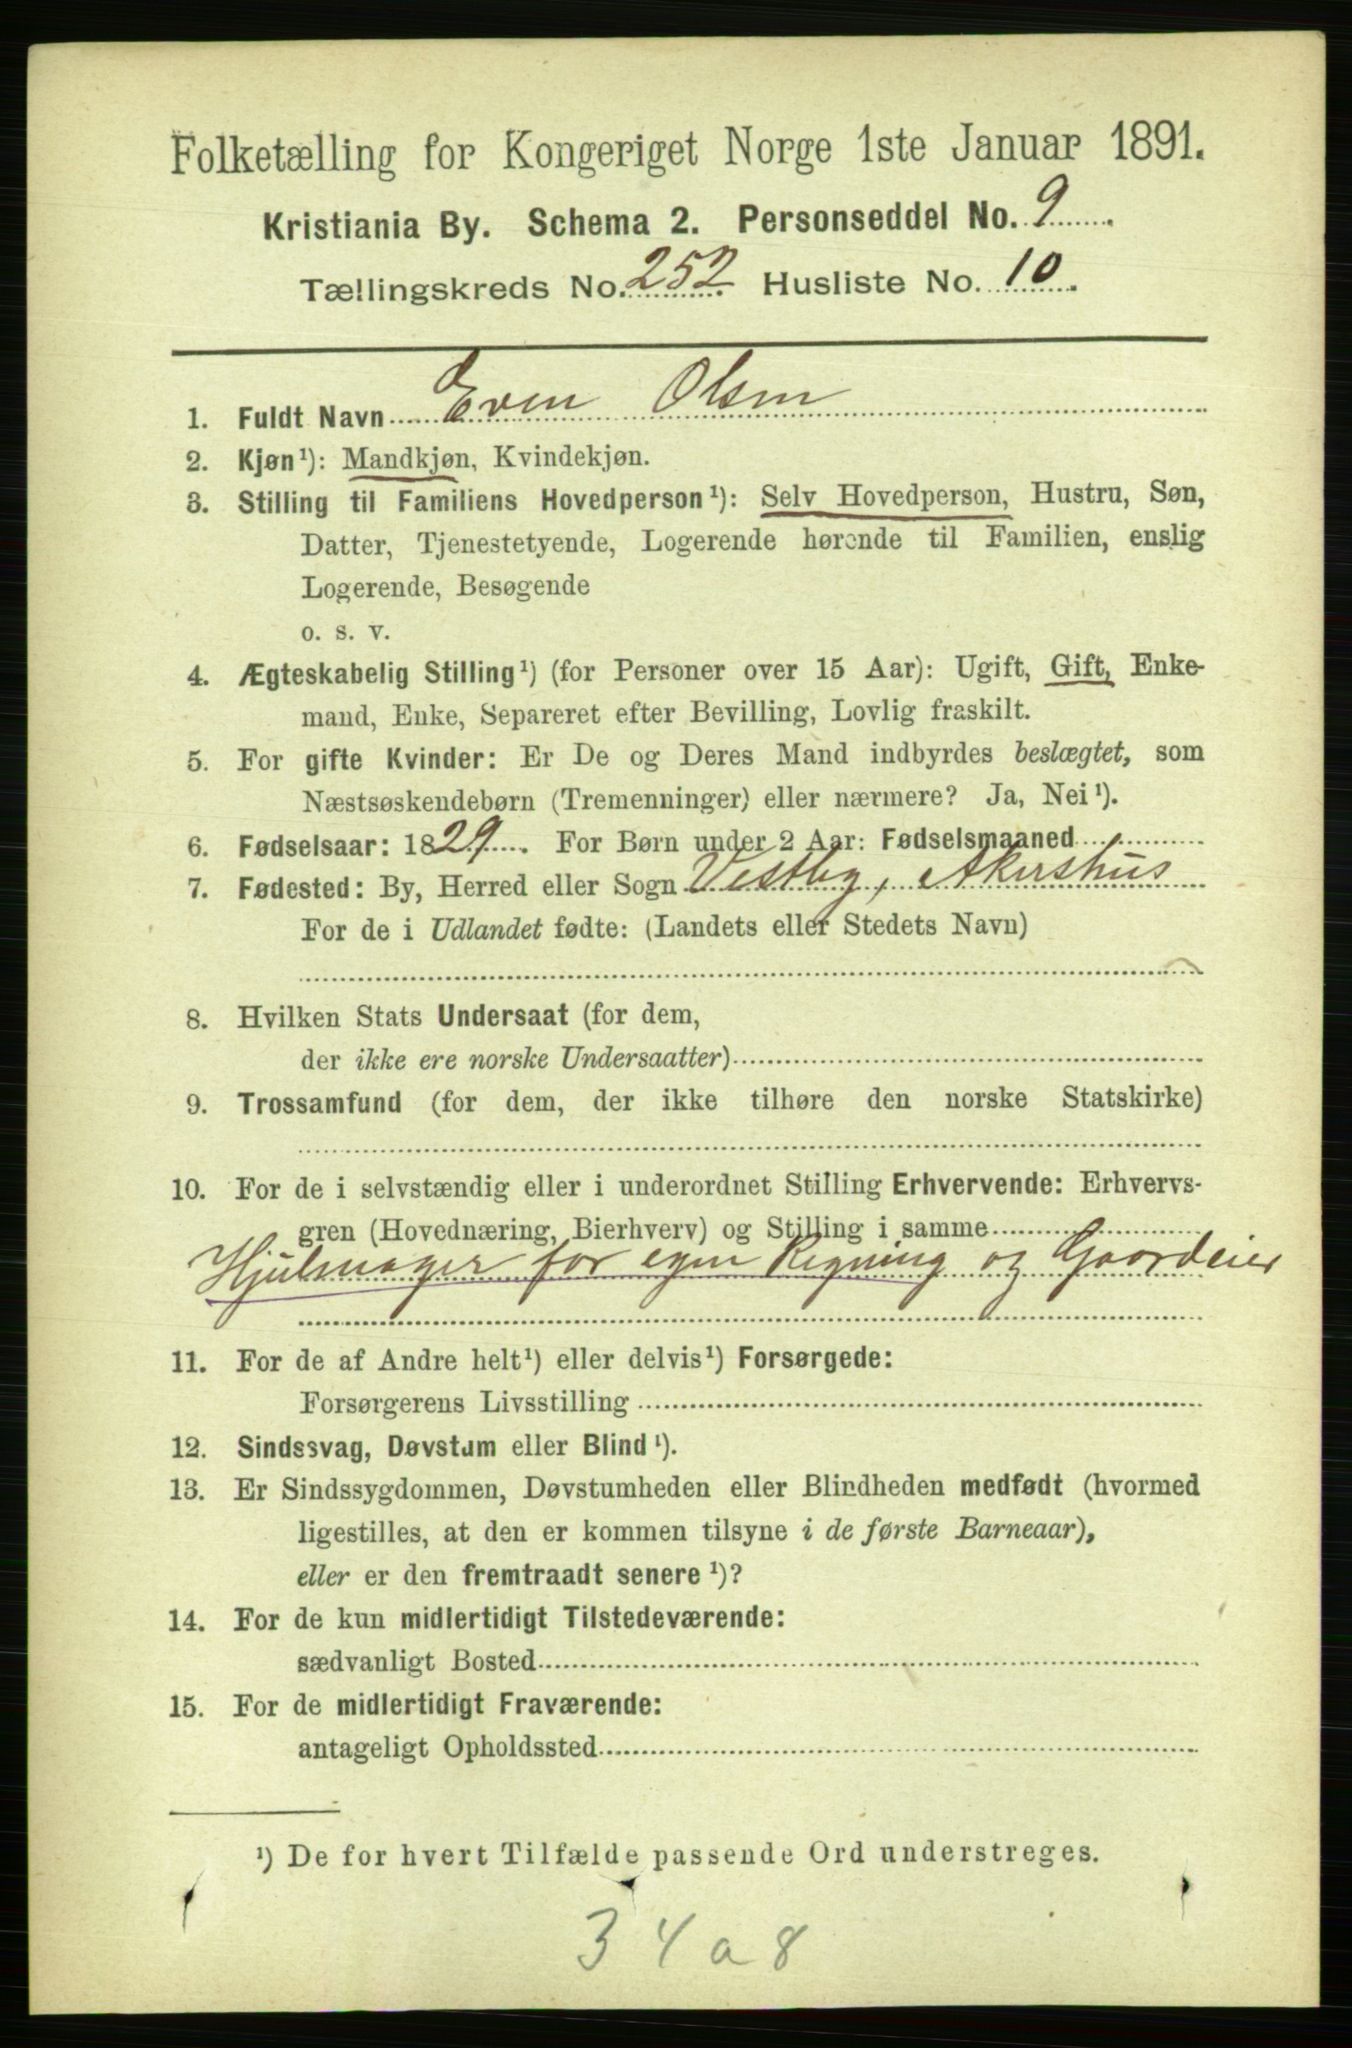 Folketælling for Kongeriget Norge 1ste Januar 1891.
Kristiania By. Schema 2. Personseddel No. 9.
Tællingskreds No. 252. Husliste No. 10.
1. Fuldt Navn Even Olsen
2. Kjøn¹): Mandkjøn, Kvindekjøn.
3. Stilling til Familiens Hovedperson¹): Selv Hovedperson, Hustru, Søn,
Datter, Tjenestetyende, Logerende hørende til Familien, enslig
Logerende, Besøgende
o. s. v.
4. Ægteskabelig Stilling¹) (for Personer over 15 Aar): Ugift, Gift, Enke-
mand, Enke, Separeret efter Bevilling, Lovlig fraskilt.
5. For gifte Kvinder: Er De og Deres Mand indbyrdes beslægtet, som
Næstsøskendebørn (Tremenninger) eller nærmere? Ja, Nei¹).
6. Fødselsaar: 1829. For Børn under 2 Aar: Fødselsmaaned
7. Fødested: By, Herred eller Sogn Vestby, Akershus
For de i Udlandet fødte: (Landets eller Stedets Navn)
8. Hvilken Stats Undersaat (for dem,
der ikke ere norske Undersaatter)
9. Trossamfund (for dem, der ikke tilhøre den norske Statskirke)
10. For de i selvstændig eller i underordnet Stilling Erhvervende: Erhvervs-
gren (Hovednæring, Bierhverv) og Stilling i samme
Hjulmager for egen Regning og Gaardeier
11. For de af Andre helt¹) eller delvis¹) Forsørgede:
Forsørgerens Livsstilling
12. Sindssvag, Døvstum eller Blind¹).
13. Er Sindssygdommen, Døvstumheden eller Blindheden medfødt (hvormed
ligestilles, at den er kommen tilsyne i de første Barneaar),
eller er den fremtraadt senere¹)?
14. For de kun midlertidigt Tilstedeværende:
sædvanligt Bosted
15. For de midlertidigt Fraværende:
antageligt Opholdssted
¹) De for hvert Tilfælde passende Ord understreges.
34a8